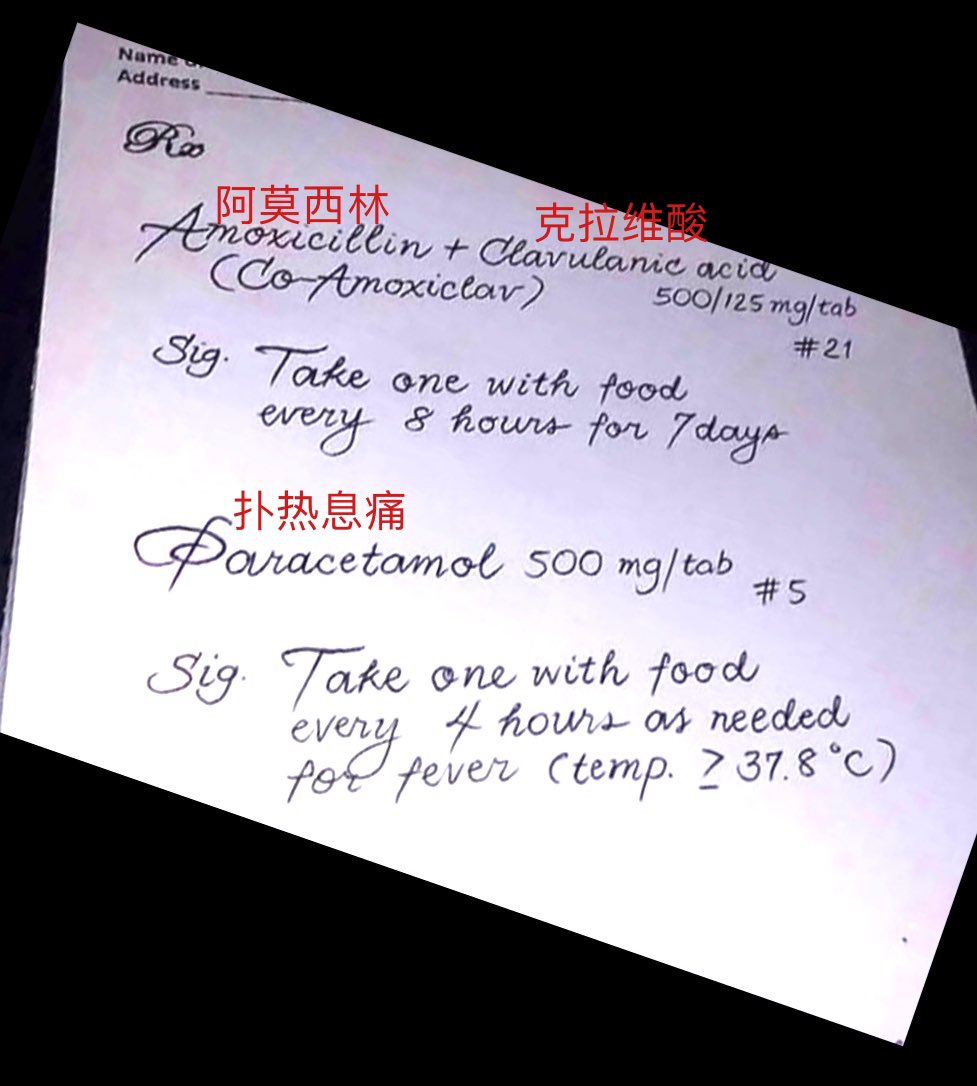 Name
Address
Rx
阿莫西林 克拉维酸
Amoxicillin + Clavulanic acid
(Co-Amoxiclav) 500/125 mg/tab
#21
Sig. Take one with food
every 8 hours for 7 days
扑热息痛
Paracetamol 500 mg/tab #5
Sig. Take one with food
every 4 hours as needed
for fever (temp. ≥ 37.8 °C)